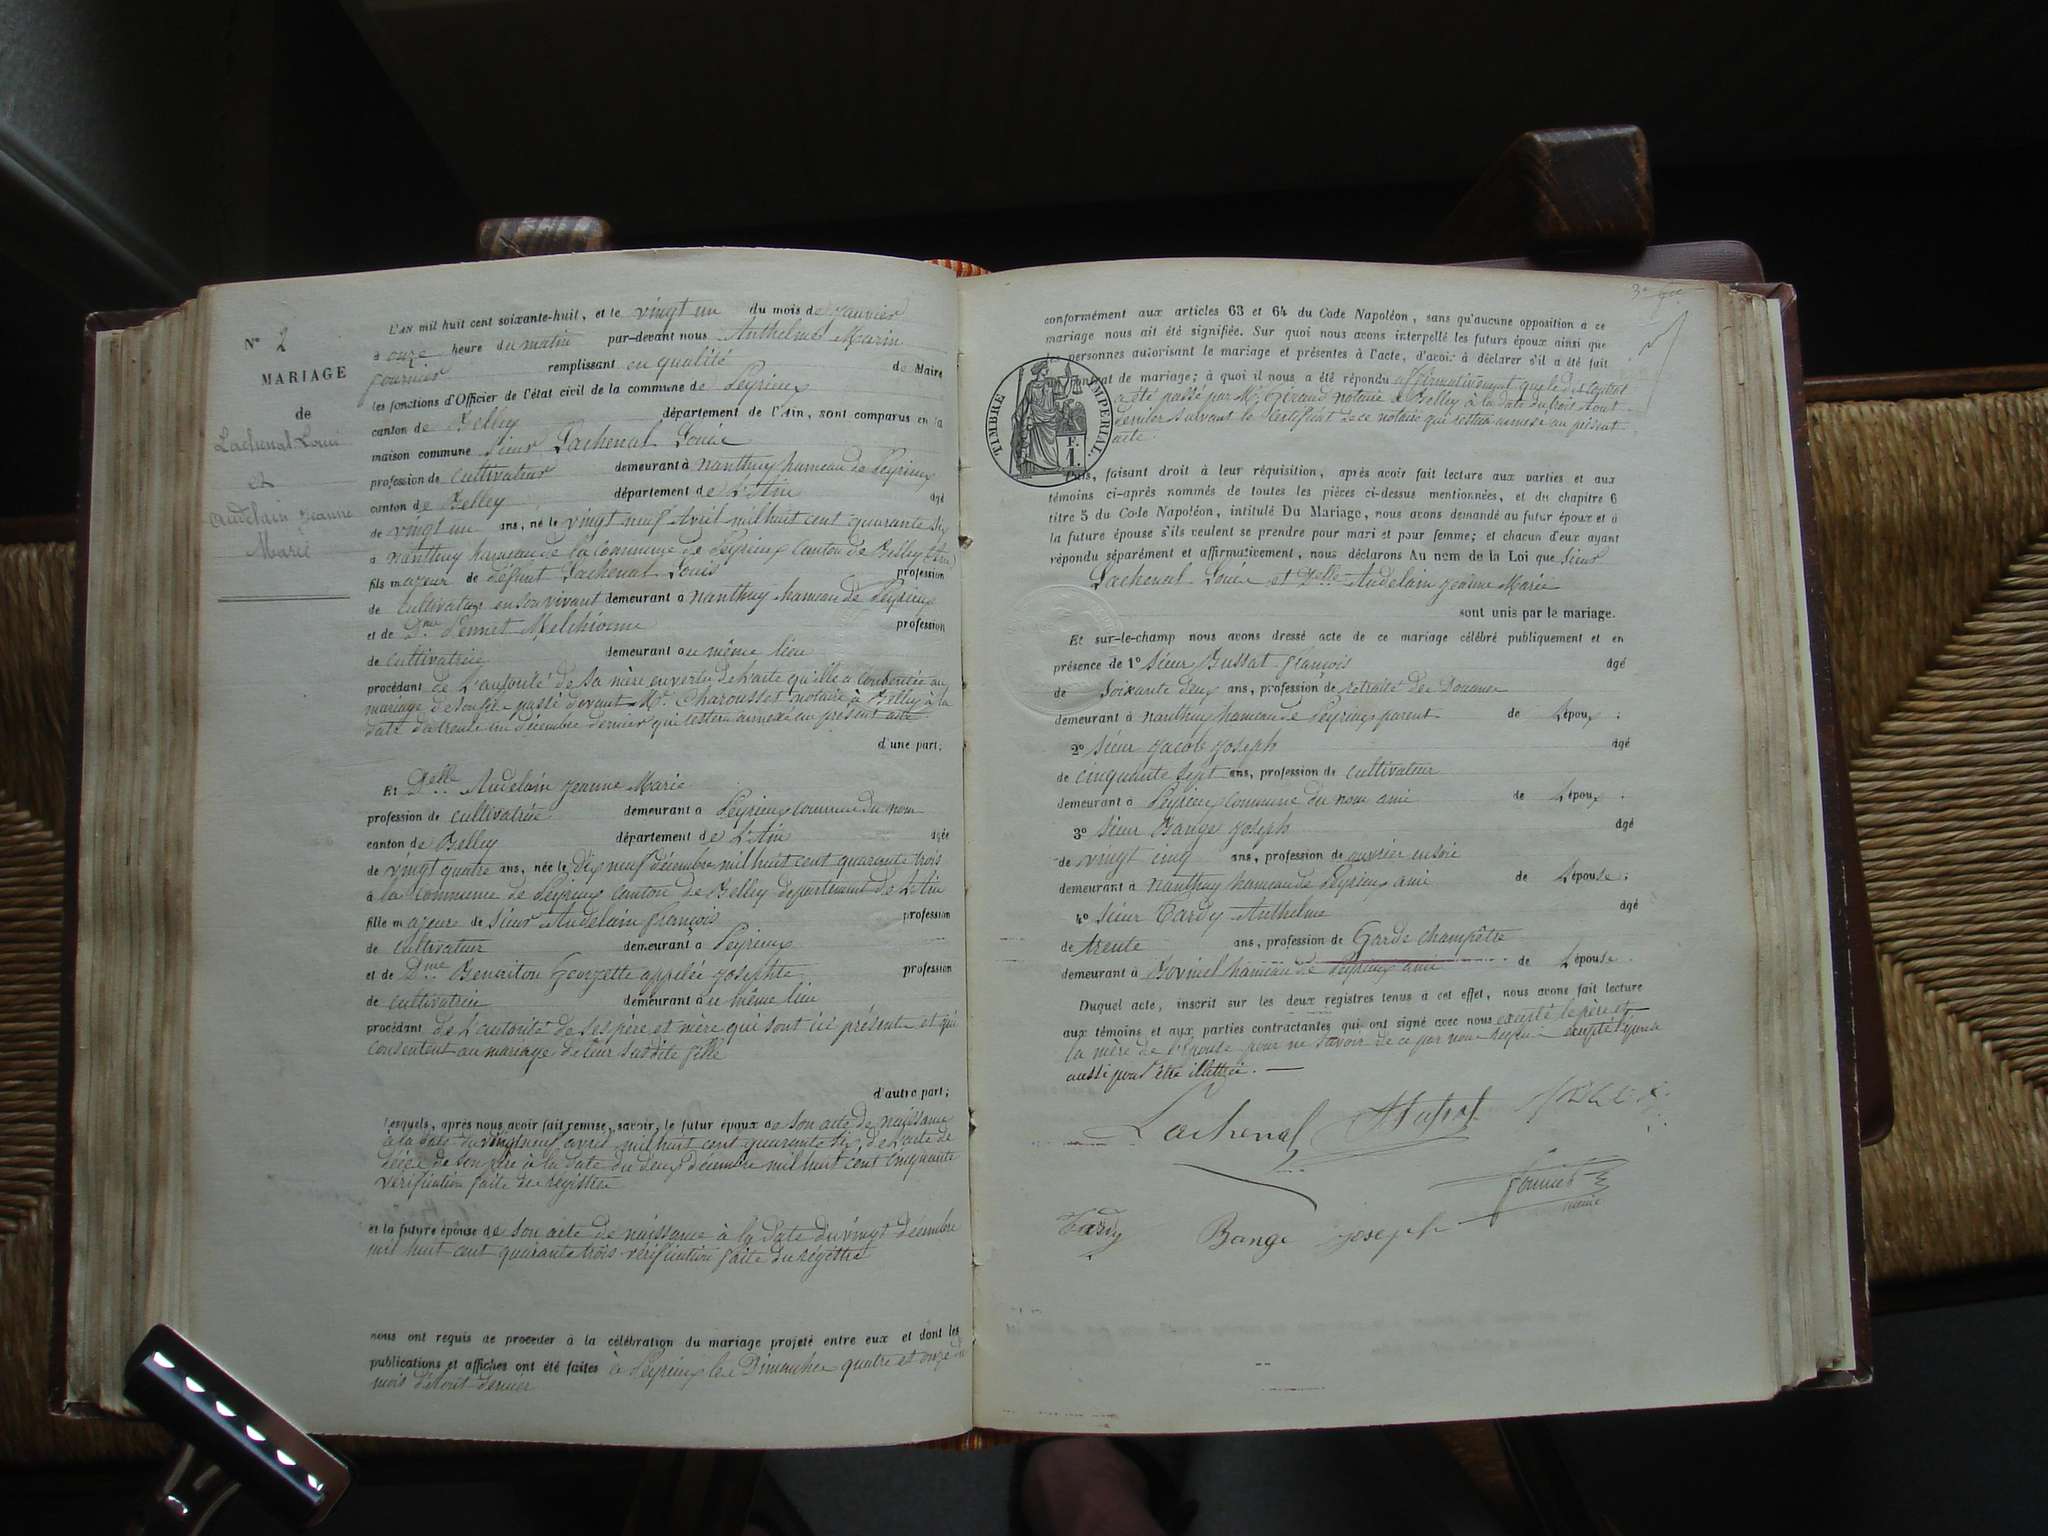 N° 2
MARIAGE
de
Lachenal Louis
et
Audelain Jeanne
Marie
L'AN mil huit cent soixante-huit, et le vingt un du mois de Janvier
à onze heure du matin par-devant nous Anthelme Marin
Fournier remplissant en qualité de Maire
les fonctions d'Officier de l'état civil de la commune de Peyrieux
canton de Belley département de l'Ain, sont comparus en la
maison commune Sieur Lachenal Louis
profession de cultivateur demeurant à Nanthuy hameau de Peyrieux
canton de Belley département de L'Ain âgé
de vingt un ans, né le vingt neuf Avril mil huit cent quarante six
à Nanthuy hameau de la Commune de Peyrieux Canton de Belley (Ain)
fils majeur de défunt Lachenal Louis profession
de Cultivateur en son vivant demeurant à Nanthuy hameau de Peyrieux
et de Dme Pennet Melchiorine profession
de cultivatrice demeurant au même lieu
procédant de L'autorité de sa mère en vertu de L'acte qu'elle a consentie au
mariage de son fils passé devant Me Charousset notaire à Belley à la
date du trente un décembre dernier qui restera annexé au présent acte
d'une part;
Et Delle Audelain Jeanne Marie
profession de cultivatrice demeurant à Peyrieux commune du nom
canton de Belley département de L'Ain âgée
de vingt quatre ans, née le dix neuf décembre mil huit cent quarante trois
à la Commune de Peyrieux Canton de Belley département de L'Ain
fille majeure de Sieur Audelain François profession
de cultivateur demeurant à Peyrieux
et de Dme Benaiton Georgette appelée Josephte profession
de cultivatrice demeurant au même lieu
procédant de L'autorité de ses père et mère qui sont ici présents et qui
consentent au mariage de leur susdite fille
d'autre part;
Lesquels, après nous avoir fait remise, savoir, le futur époux de son acte de naissance
à la date du vingt neuf avril mil huit cent quarante six, de L'acte de
décès de son père à la date du deux décembre mil huit cent cinquante
vérification faite du régistre
et la future épouse de son acte de naissance à la date du vingt décembre
mil huit cent quarante trois vérification faite du régistre
nous ont requis de procéder à la célébration du mariage projeté entre eux et dont les
publications et affiches ont été faites à Peyrieux les Dimanches quatre et onze du
mois d'Aout dernier
conformément aux articles 63 et 64 du Code Napoléon, sans qu'aucune opposition à ce
mariage nous ait été signifiée. Sur quoi nous avons interpellé les futurs époux ainsi que
les personnes autorisant le mariage et présentes à l'acte, d'avoir à déclarer s'il a été fait
contrat de mariage; à quoi il nous a été répondu affirmativement que le dit contrat
a été passé par Me Giraud notaire à Belley à la date du trois Aout
dernier suivant le Certificat de ce notaire qui restera annexé au présent
acte.
TIMBRE IMPERIAL.
F.
1.
Puis, faisant droit à leur réquisition, après avoir fait lecture aux parties et aux
témoins ci-après nommés de toutes les pièces ci-dessus mentionnées, et du chapitre 6
titre 5 du Code Napoléon, intitulé Du Mariage, nous avons demandé au futur époux et à
la future épouse s'ils veulent se prendre pour mari et pour femme; et chacun d'eux ayant
répondu séparément et affirmativement, nous déclarons Au nom de la Loi que Sieur
Lachenal Louis et Delle Audelain Jeanne Marie
sont unis par le mariage.
Et sur-le-champ nous avons dressé acte de ce mariage célébré publiquement et en
présence de 1° Sieur Bussat François âgé
de Soixante deux ans, profession de retraité des Douanes
demeurant à Nanthuy hameau de Peyrieux parent de L'époux ;
2° Sieur Jacob Joseph âgé
de cinquante sept ans, profession de cultivateur
demeurant à Peyrieux commune du nom ami de L'époux .
3° Sieur Bange Joseph âgé
de vingt cinq ans, profession de ouvrier en soie
demeurant à Nanthuy hameau de Peyrieux ami de L'épouse ;
4° Sieur Tardy Anthelme âgé
de trente ans, profession de Garde champêtre
demeurant à Bovinel hameau de Peyrieux ami de L'épouse .
Duquel acte, inscrit sur les deux registres tenus à cet effet, nous avons fait lecture
aux témoins et aux parties contractantes qui ont signé avec nous excepté le père et
la mère de l'épouse pour ne savoir de ce par nous requis excepté l'épouse
aussi pour être illettrée.
Lachenal
Fournier
maire
Tardy Bange joseph